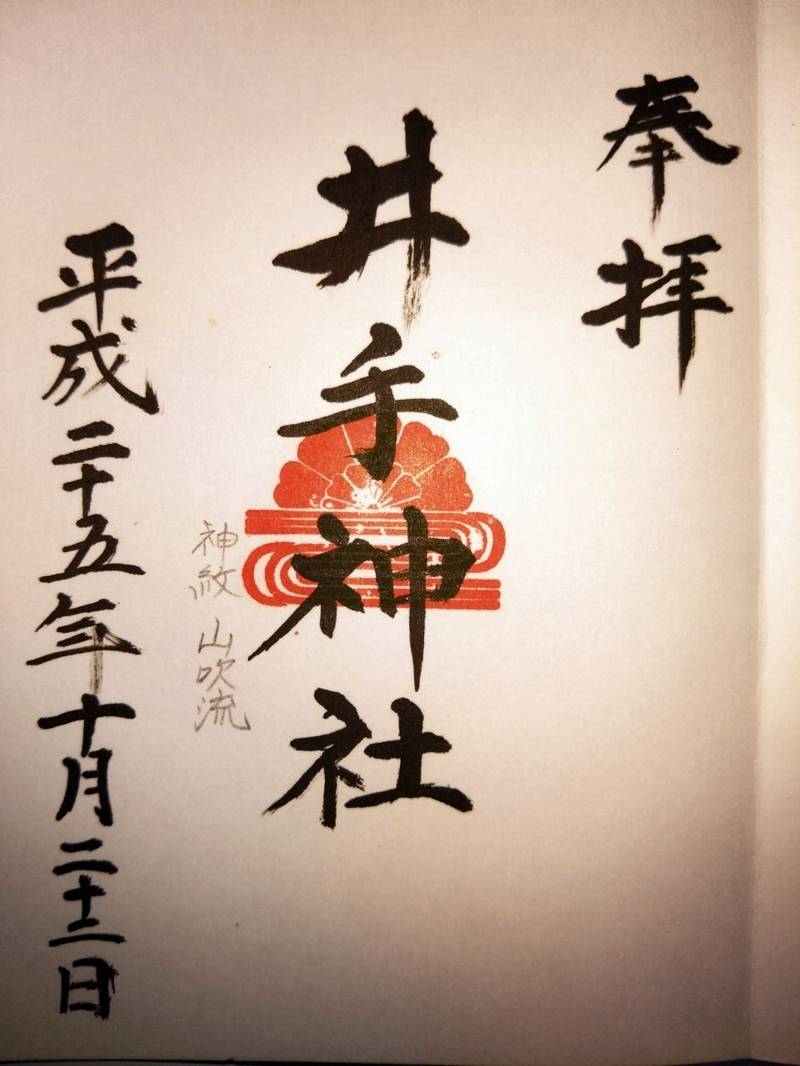 奉拝
井手神社
神紋 山吹流
平成二十五年十月二十二日